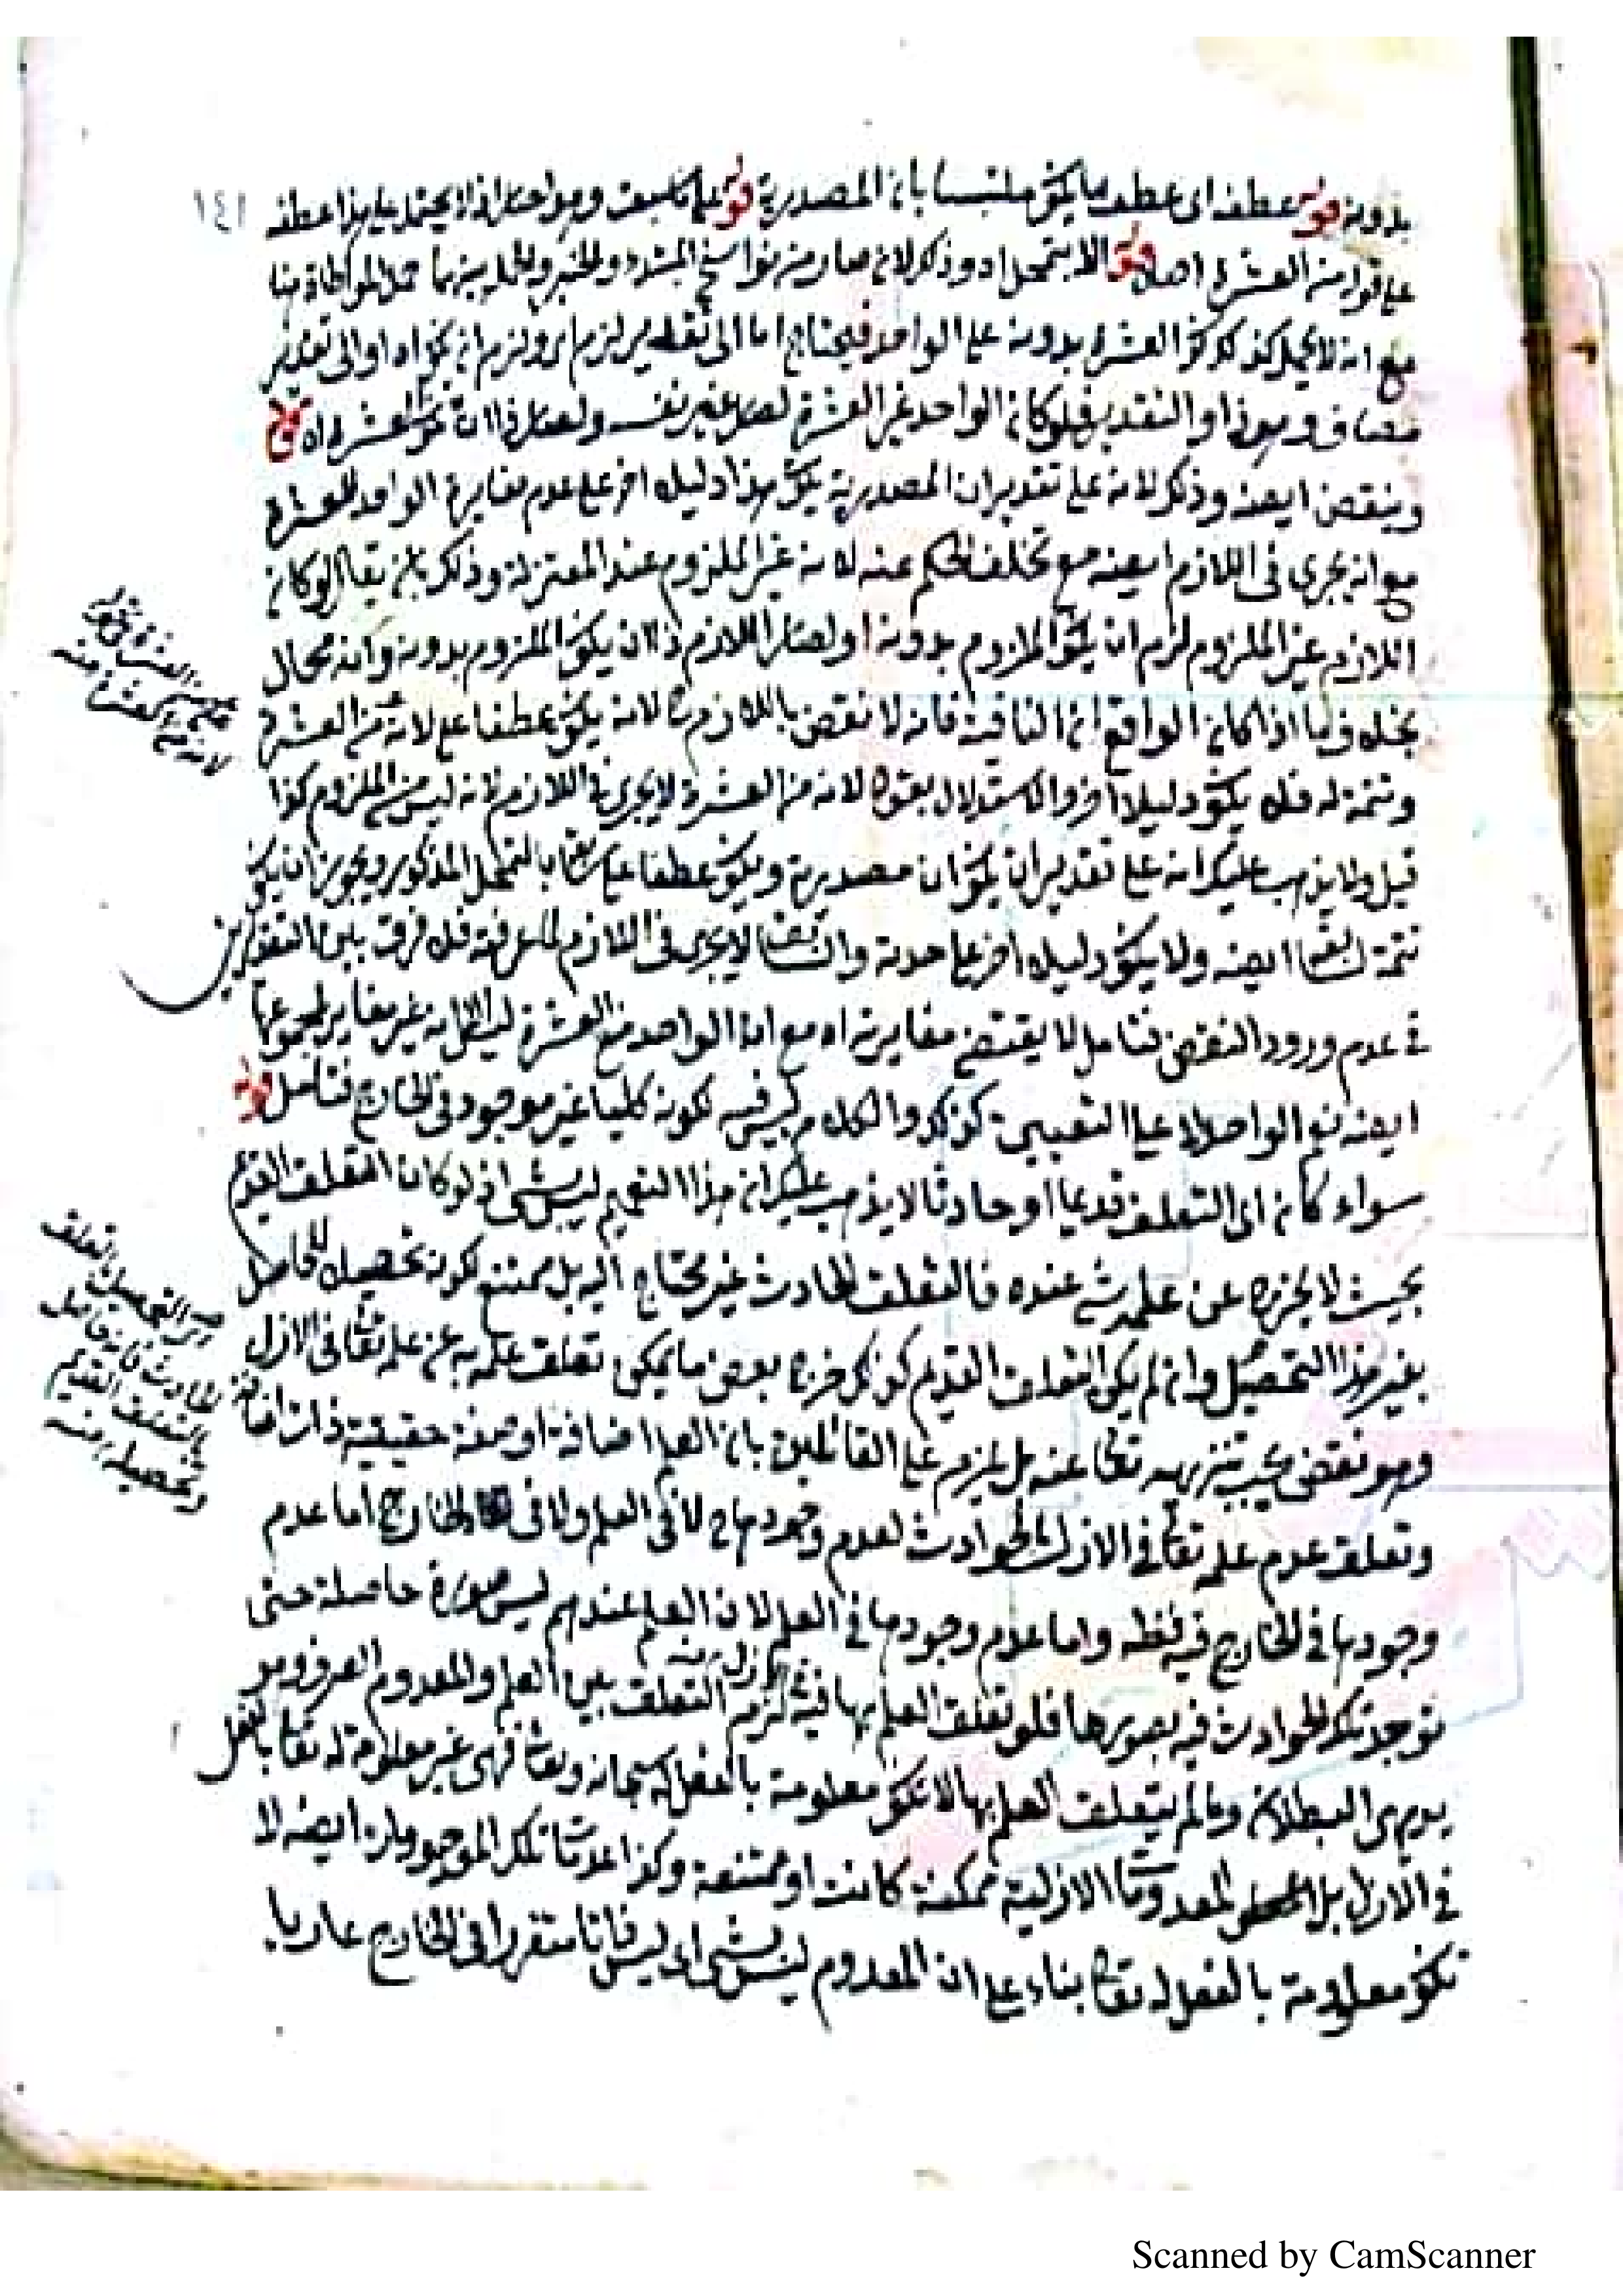 ١٤١
بدونه قوله عطفه اى عطف ما يكون ملتبسا بان المصدرية قوله على ما سبق وهو احد اذ لا يحتمل عطفه
على قوله من العشرة قوله الا بتمحل اه وذلك لان صار من نواسخ المبتدء والخبر والحمل بينهما حمل المواطاة هنا
مع انه لا يحمل كذلك كون العشرة بدونه على الواحد فيحتاج اما الى تقدير لزم اى ولزم ان يكون اه او الى تقدير
مضاف وهو ذا والتقدير فلو كان الواحد غير العشرة لصار غير نفسه ولصار ذا ان تكون العشرة اه قوله
وينقض ايضه وذلك لانه على تقدير ان المصدرية يكون هذا دليلا اخر على عدم مغايرة الواحد للعشرة
مع انه يجرى فى اللازم ايضه مع تخلف الحكم عنه لانه غير الملزوم عند المعتزلة وذلك بان يقال لو كان
اللازم غير الملزوم لزم ان يكون الملزوم بدونه او لصار اللازم ذا ان يكون الملزوم بدونه وانه محال
بخلاف ما اذا كان الواقع ان النافية فانه لا نقض باللازم ح لانه يكون عطفا على لانه من العشرة
وتتمة له فلا يكون دليلا آخر والاستدلال بقوله لانه من العشرة لا يجرى فى اللازم لانه ليس من الملزوم كذا
قيل ولا يذهب عليك انه على تقدير ان يكون ان مصدرية ويكون عطفا على بالتمحل المذكور ويجوز ان يكون
تتمة ايضه ولا يكون دليلا اخر على حدة لا يجرى فى اللازم لما عرفته فلا فرق بين التقديرين
فى عدم ورود النقض فتامل لا يقتضى مغايرته اه مع ان الواحد من العشرة غير مغاير لمجموعها
ايضه نعم الواحد لا على التعيين كذلك والكلام ليس فيه لكونه كليا غير موجود فى الخارج فتامل قوله
سواء كان اى التعلق قديما او حادثا لا يذهب عليك ان هذا التعميم ليس بشئ اذ لو كان التعلق القديم
بحيث لا يخرج عن علمه شئ عنده فالتعلق الحادث غير محتاج اليه بل ممتنع لكونه تحصيلا للحاصل
بغير هذا التحصيل وان لم يكن التعلق القديم كذلك خرج بعض ما يمكن تعلق علمه به عن علمه تعالى فى الازل
وهو نقض يجب تنزيهه تعالى عنه بل يلزم على القائلين بان العلم اضافة او صفة حقيقية ذات اضافة
وتعلق عدم علمه تعالى فى الازل بالحوادث لعدم وجودها ح لا فى العلم ولا فى الخارج اما عدم
وجودها فى الخارج فيه فظه واما عدم وجودها فى العلم لان العلم عندهم ليس صورة حاصلة حتى
توجد تلك الحوادث فيه بصورها فلو تعلق العلم بها فيه لزم التعلق بين العلم والمعدوم الصرف وهو
بديهى البطلان وما لم يتعلق العلم بها لا تكون معلومة بالفعل له سبحانه وتعالى فهى غير معلومة له تعالى بالفعل
فى الازل بل المعدومات الازلية ممكنة كانت او ممتنعة وكذا تلك الموجودات ايضه لا
تكون معلومة بالفعل له تعالى بناء على ان المعدوم ليس بشئ اى ليس ثابتا متقررا فى الخارج عاريا
التعلق
الحادث فانه حاصل
بالتعلق القديم
وتحصيله منه
Scanned by CamScanner